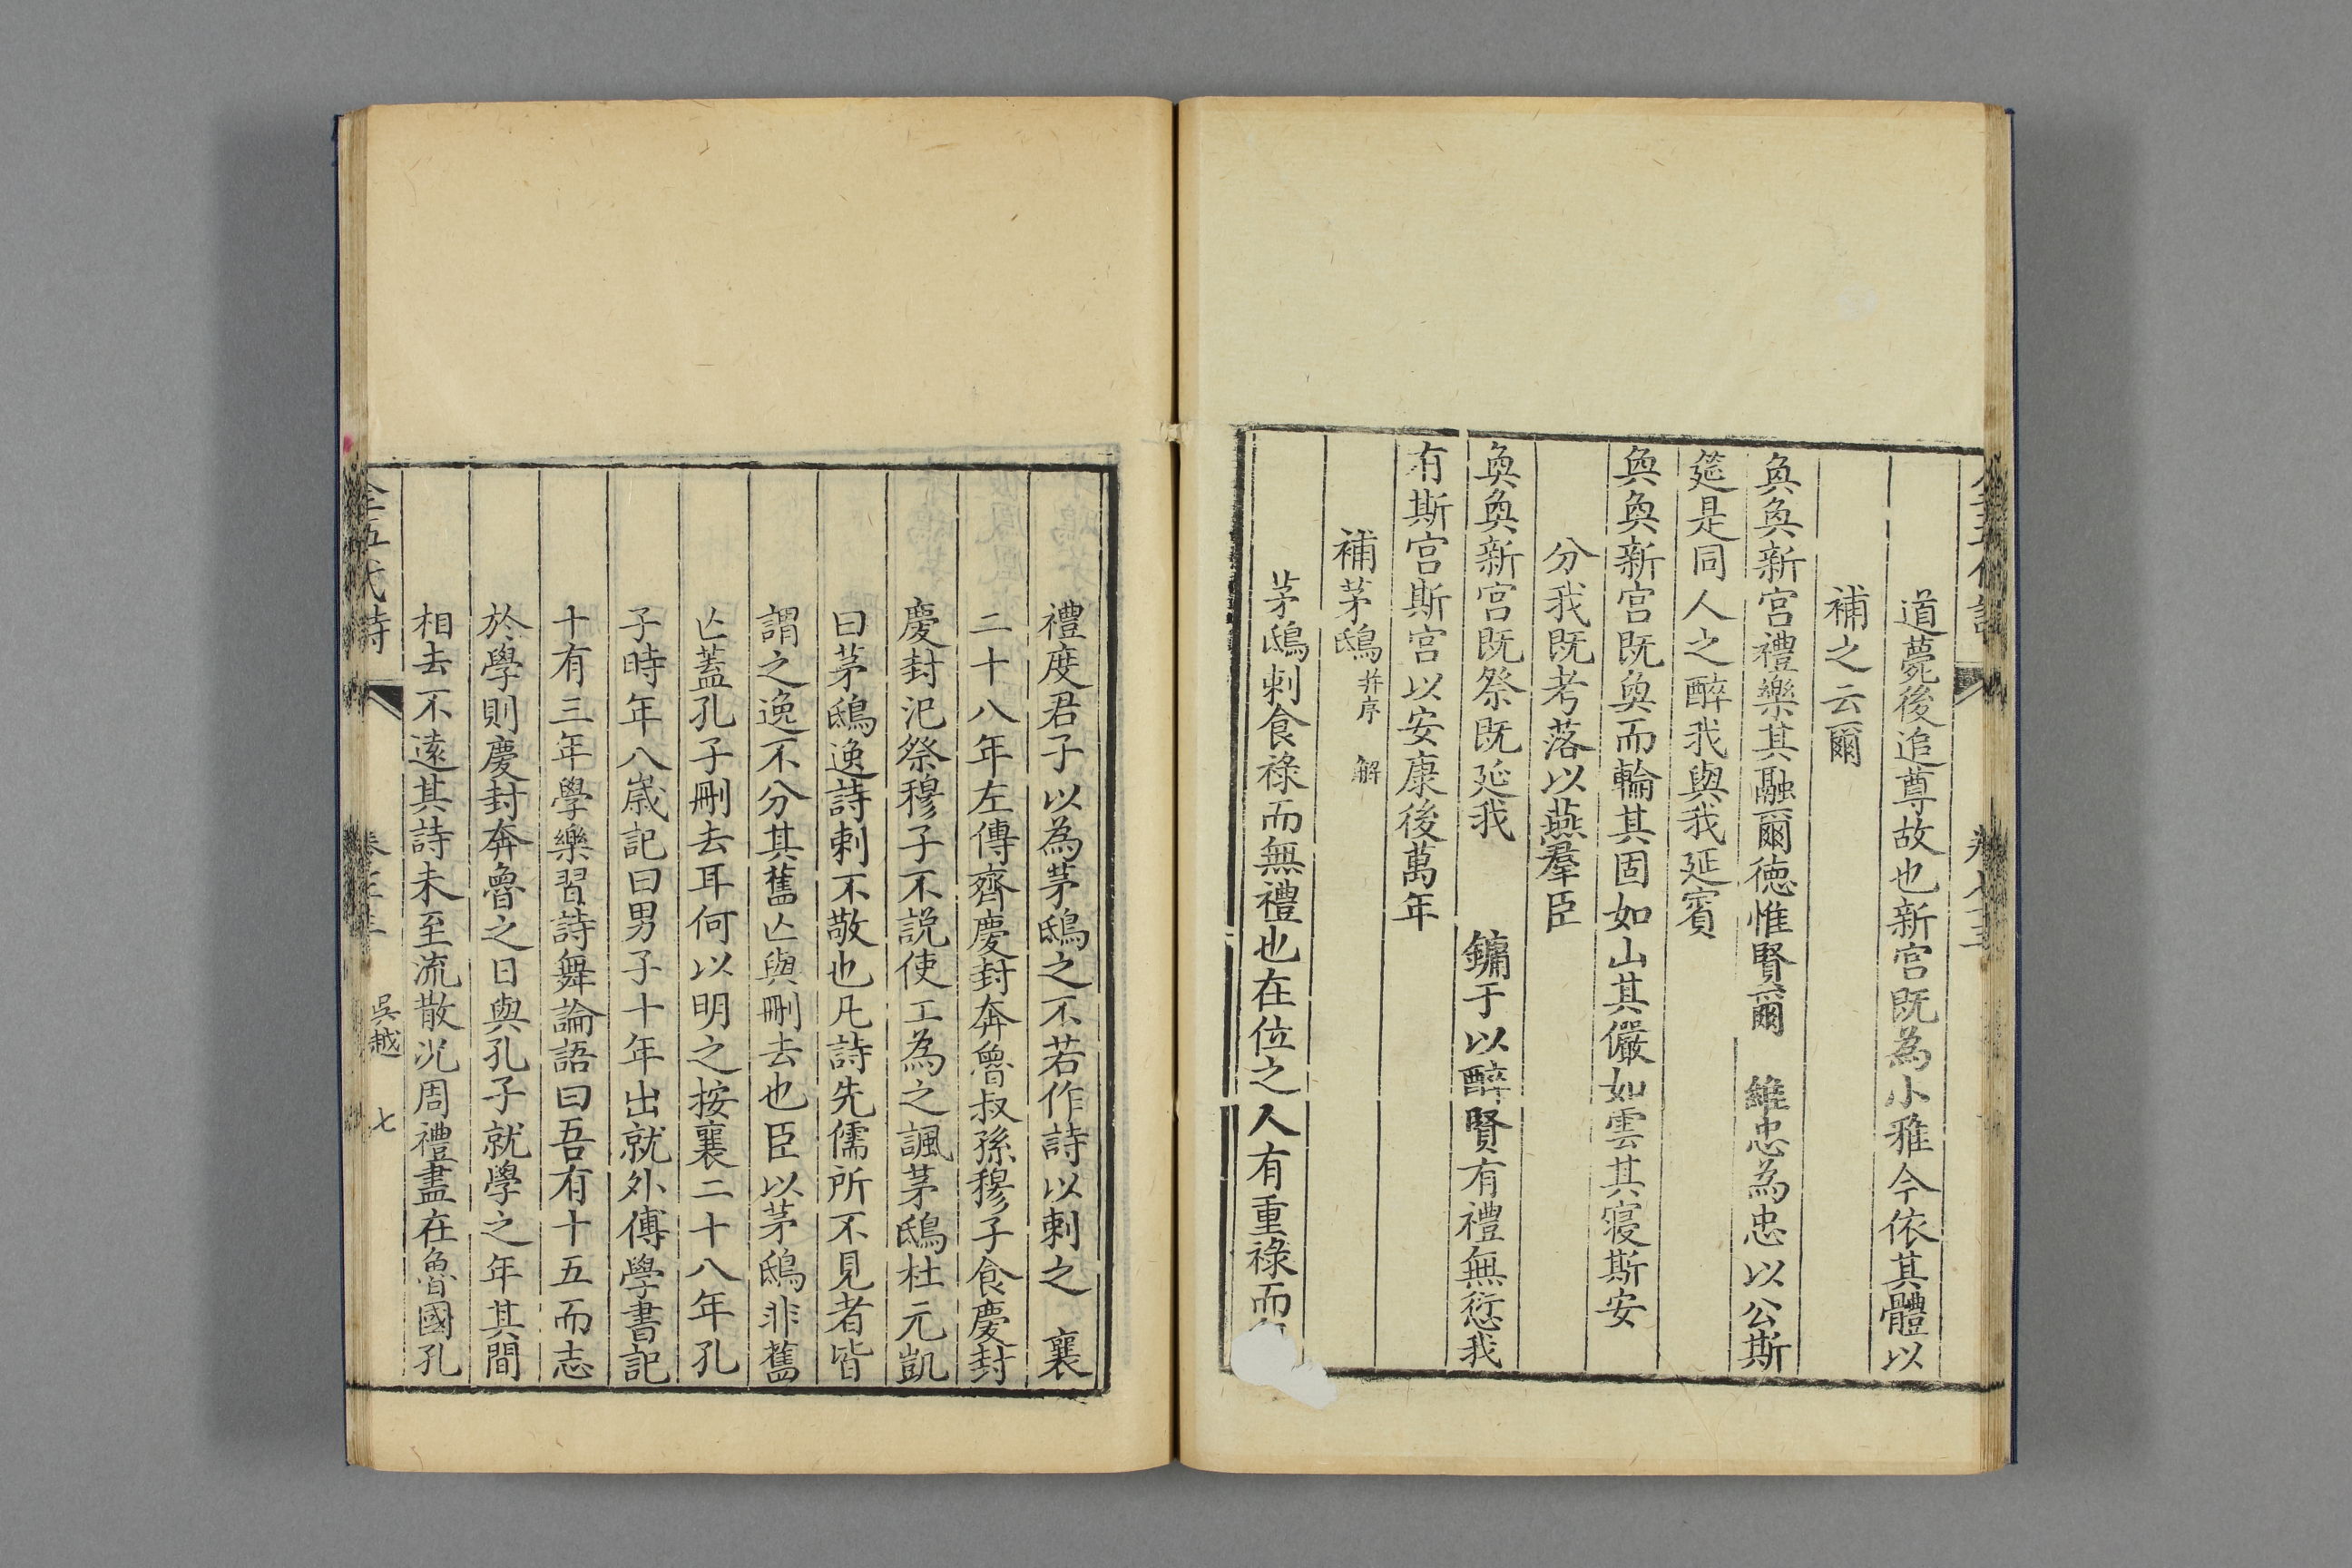 道薨後追尊故也新宮既為小雅今依其體以
補之云爾
奐奐新宮禮樂其融爾德惟賢爾 維忠為忠以公斯
筵是同人之醉我與我延賓
奐奐新宮既奐而輪其固如山其儼如雲其寢斯安
分我既考落以燕羣臣
奐奐新宮既祭既延我 鏞于以醉賢有禮無愆我
有斯宮斯宮以安康後萬年
補茅鴟并序 解
茅鴟刺食祿而無禮也在位之人有重祿而
禮度君子以為茅鴟之不若作詩以刺之 襄
二十八年左傳齊慶封奔魯叔孫穆子食慶封
慶封汜祭穆子不說使工為之諷茅鴟杜元凱
曰茅鴟逸詩刺不敬也凡詩先儒所不見者皆
謂之逸不分其舊亾與刪去也臣以茅鴟非舊
亾蓋孔子刪去耳何以明之按襄二十八年孔
子時年八歲記曰男子十年出就外傅學書記
十有三年學樂習詩舞論語曰吾有十五而志
於學則慶封奔魯之日與孔子就學之年其間
相去不遠其詩未至流散況周禮盡在魯國孔
全五代詩 吳越 七